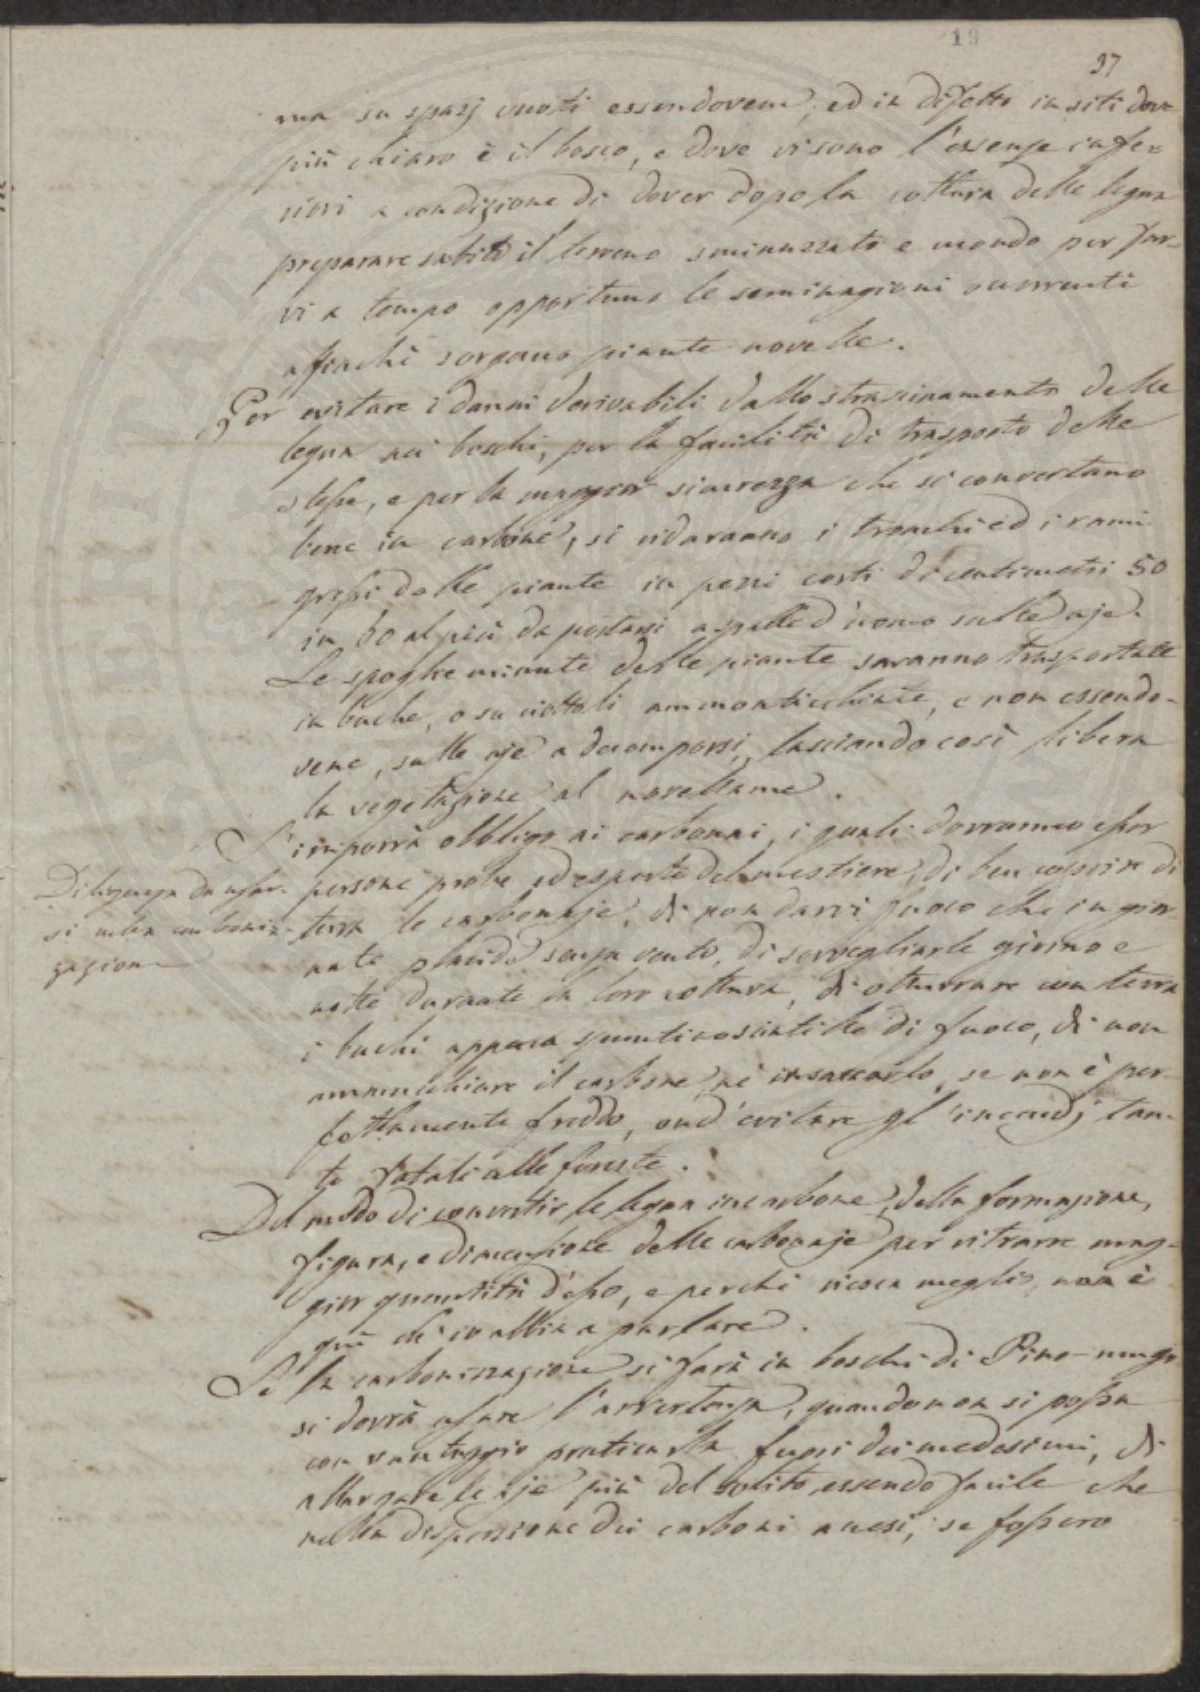 19
37
ma su spazj vuoti essendovene, ed in difetto in siti dove
più chiaro è il bosco, e dove vi sono l'essenze infe-
riori a condizione di dover dopo la cottura delle legna
preparare subito il terreno sminuzzato e mondo per far-
vi a tempo opportuno le seminagioni occorrenti
affinchè sorgano piante novelle.
Per evitare i danni derivabili dallo strascinamento delle
legna nei boschi, per la facilità di trasporto delle
stesse, e per la maggior sicurezza che si convertano
bene in carbone, si ridaranno i tronchi ed i rami
grossi delle piante in pezzi corti di centimetri 50
in 60 al più da portarsi a spalle d'uomo sulle aje.
Le spoglie minute delle piante saranno trasportate
in buche, o su viottoli ammonticchiate, e non essendo-
vene, sulle aje a decomporsi, lasciando così libera
la vegetazione al novellame.
S'imporrà obbligo ai carbonai, i quali dovranno esser
Diligenza da usar-
si nella carboniz-
zazione
persone probe ed esperte del mestiere, di ben coprire di
terra le carbonaje, di non darvi fuoco che in gior
nate placide senza vento, di sorvegliarle giorno e
notte durante la loro cottura, di otturare con terra
i buchi appena spuntino scintille di fuoco, di non
ammucchiare il carbone, nè insaccarlo, se non è per-
fettamente freddo, ond'evitare gl'incendj tan-
to fatali alle foreste.
Del modo di convertir le legna in carbone, della formazione,
figura, e dimensione delle carbonaje per ritrarre mag-
gior quantità d'esso, e perchè riesca meglio, non è
quì che io abbia a parlare.
Se la carbonizzazione si farà in boschi di Pino-mugo
si dovrà usare l'avvertenza, quando non si possa
con vantaggio praticarla fuori dei medesimi, di
allargare le aje più del solito essendo facile che
nella dispersione dei carboni accesi, se fossero